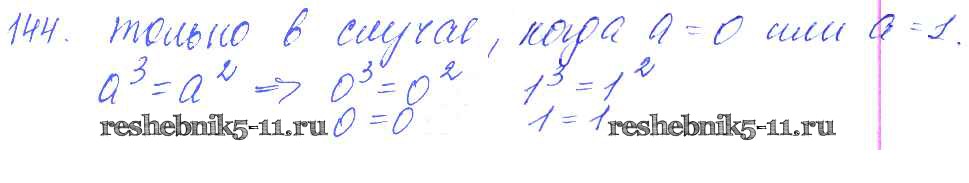 144. только в случае, когда a = 0 или a = 1.
a³ = a² => 0³ = 0² 1³ = 1²
0 = 0 1 = 1
reshebnik5-11.ru reshebnik5-11.ru